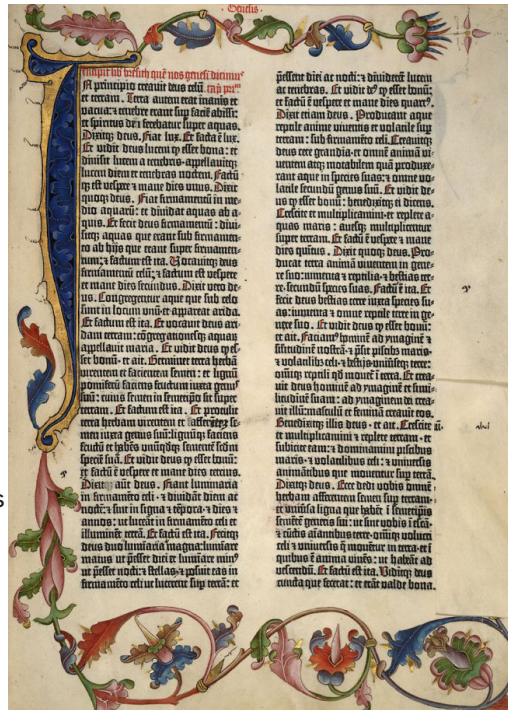 Genesis
Incipit liber bresith quē nos genesim dicimꝰ
IN principio creavit deus celū
et terram. Terra autem erat inanis et
vacua: et tenebre erant sup faciē abissi:
et spiritus dñi ferebatur super aquas.
Dixitq; deus. Fiat lux. Et facta ē lux.
Et vidit deus lucem q̇ esset bona: et
divisit lucem a tenebris-appellavitq;
lucem diem et tenebras noctem. Factūq;
est vespere et mane dies unus. Dixit
quoq; deus. Fiat firmamentū in me-
dio aquarū: et dividat aquas ab a-
quis. Et fecit deus firmamentū: divi-
sitq; aquas que erant sub firmamen-
to ab hijs que erant super firmamen-
tum: et factum est ita. Vocavitq; deus
firmamentum celū: et factum est vespere
et mane dies secundus. Dixit vero de-
us. Congregentur aque que sub celo
sunt in locum unū et appareat arida.
Et factum est ita. Et vocavit deus ari-
dam terram: cōgregacionesq; aquarū
appellavit maria. Et vidit deus q̇ es-
set bonū-et ait. Germinet terra herbā
virentem et facientem semen: et lignū
pomiferū faciens fructum iuxta genus
suū: cuius semen in semetipso sit super
terram. Et factum est ita. Et protulit
terra herbam virentem et
semen iuxta genus suū: lignūq; faciens
fructū et habēs unūqdq; sementē scdm
speciē suā. Et vidit deus q̇ esset bonū:
et factū ē vespere et mane dies tercius.
Dixit aūt deus. Fiant luminaria
in firmamēto celi-et dividāt diem ac
noctē: et sint in signa et tēpora-et dies et
annos: ut luceāt in firmamēto celi et
illuminēt terrā. Et factū est ita. Fecitq;
deus duo luminaria magna: luminare
maius ut pēsset diei et luminare minꝰ
ut pēsset nocti: et stellas-et posuit eas in
firmamēto celi ut lucerent sup terrā: et
pēssent diei ac nocti: et dividerēt lucem
ac tenebras. Et vidit deꝰ q̇ esset bonū:
et factū ē vespere et mane dies quartꝰ.
Dixit etiam deus. Producant aque
reptile anime viventis et volatile sup
terram: sub firmamēto celi. Creavitq;
deus cete grandia-et omnē animā vi-
ventem atq; motabilem quā produxe-
rant aque in species suas: et omne vo-
latile secundū genus suū. Et vidit de-
us q̇ esset bonū: benedixitq; ei dicens.
Crescite et multiplicamini-et replete a-
quas maris: avesq; multiplicentur
super terram. Et factū ē vespere et mane
dies quintus. Dixit quoq; deus. Pro-
ducat terra animā viventem in gene-
re suo: iumenta et reptilia-et bestias ter-
re-secundū species suas. Factū ē ita. Et
fecit deus bestias terre iuxta species su-
as: iumenta et omne reptile terre in ge-
nere suo. Et vidit deus q̇ esset bonū:
et ait. Faciamꝰ hominē ad ymaginē et
silitudinē nostrā-et p̄sit piscibꝫ maris-
et volatilibꝫ celi-et bestijs universeq; terre:
omniq; reptili qḋ movet ī terra. Et crea-
vit deus hominē ad ymaginē et simi-
litudinē suam: ad ymaginem dei crea-
vit illū: masculū et feminā creavit eos.
Benedixitq; illis deus-et ait. Crescite
et multiplicamini et replete terram-et
subicite eam: et dominamini piscibus
maris-et volatilibus celi: et universis
animātibus que moventur sup terrā.
Dixitq; deus. Ecce dedi vobis omnē
herbam afferentem semen sup terram-
et universa ligna que habēt ī semetipsis
semētē generis sui: ut sint vobis ī escā-
et cūctis aīantibus terre-omniq; volucri
celi et universis q̄ moventur in terra-et ī
quibus ē anima vivēs: ut habeāt ad
vescendū. Et factū est ita. Viditq; deus
cuncta que fecerat: et erāt valde bona.